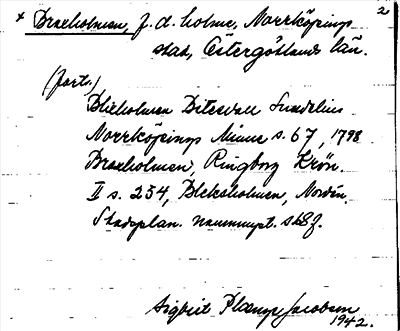 2
x Braxholmen, f.d. holme, Norrköpings
stad, Östergötlands län.
(forts.)
Blixholmen Ditswall Sundelius
Norrköpings Minne s. 67, 1798
Braxholmen, Ringborg Krön.
II s. 254, Bleksholmen, Nordén.
Stadsplan. namnupt. s.
Sigbrit Plænge Jacobson
1942.